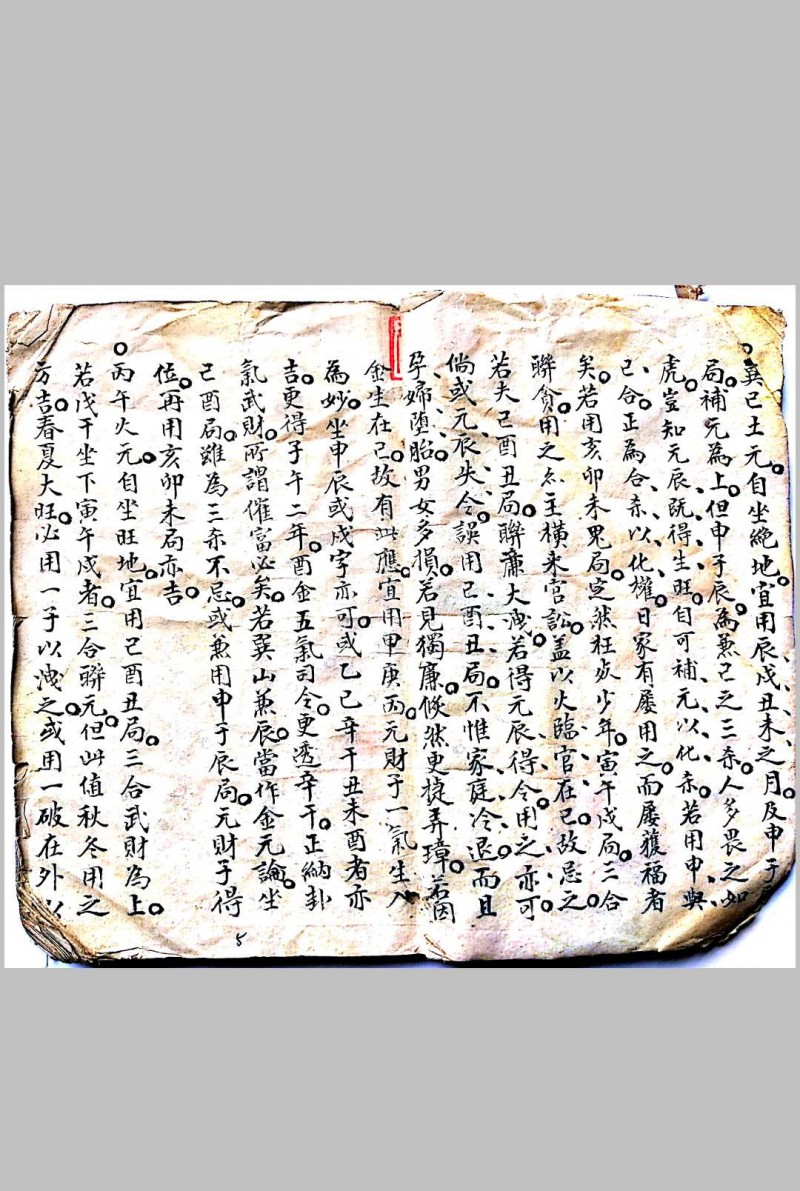 巽巳土元。自坐絶地。宜用辰戌丑未之月。及申子辰
局。補元為上。但申子辰。為兼巳之三杀。人多畏之如
虎。豈知元辰既得生旺。自可補元以化杀。若用申與
巳合。正為合杀以化權。日家有屡用之。而屡獲福者
矣。若用亥卯未鬼局。定然枉殀少年。寅午戌局。三合
聯貪。用之亦主橫来官訟。盖以火臨官在巳。故忌之
若夫巳酉丑局。聯廉大洩。若得元辰得令。用之亦可
倘或元辰失令。誤用巳酉丑局。不惟家庭冷退。而且
孕婦堕胎。男女多損。若見獨廉。倏然更捷弄璋。若因
金生在巳。故有此應。宜用甲庚丙。元財子一氣生入
為妙。坐申辰或戌字亦可。或乙己辛干丑未酉者亦
吉。更得子午二年。酉金五氣司令。更透辛干。正納卦
氣武財。所謂催富必矣。若巽山兼辰。當作金元論。坐
巳酉局。雖為三杀不忌。或兼用申子辰局。元財子得
位。再用亥卯未局亦吉。
丙午火元。自坐旺地。宜用巳酉丑局。三合武財為上。
若戊干坐下寅午戌者。三合聯元。但此值秋冬用之
方吉。春夏大旺。必用一子以洩之。或用一破在外以
5